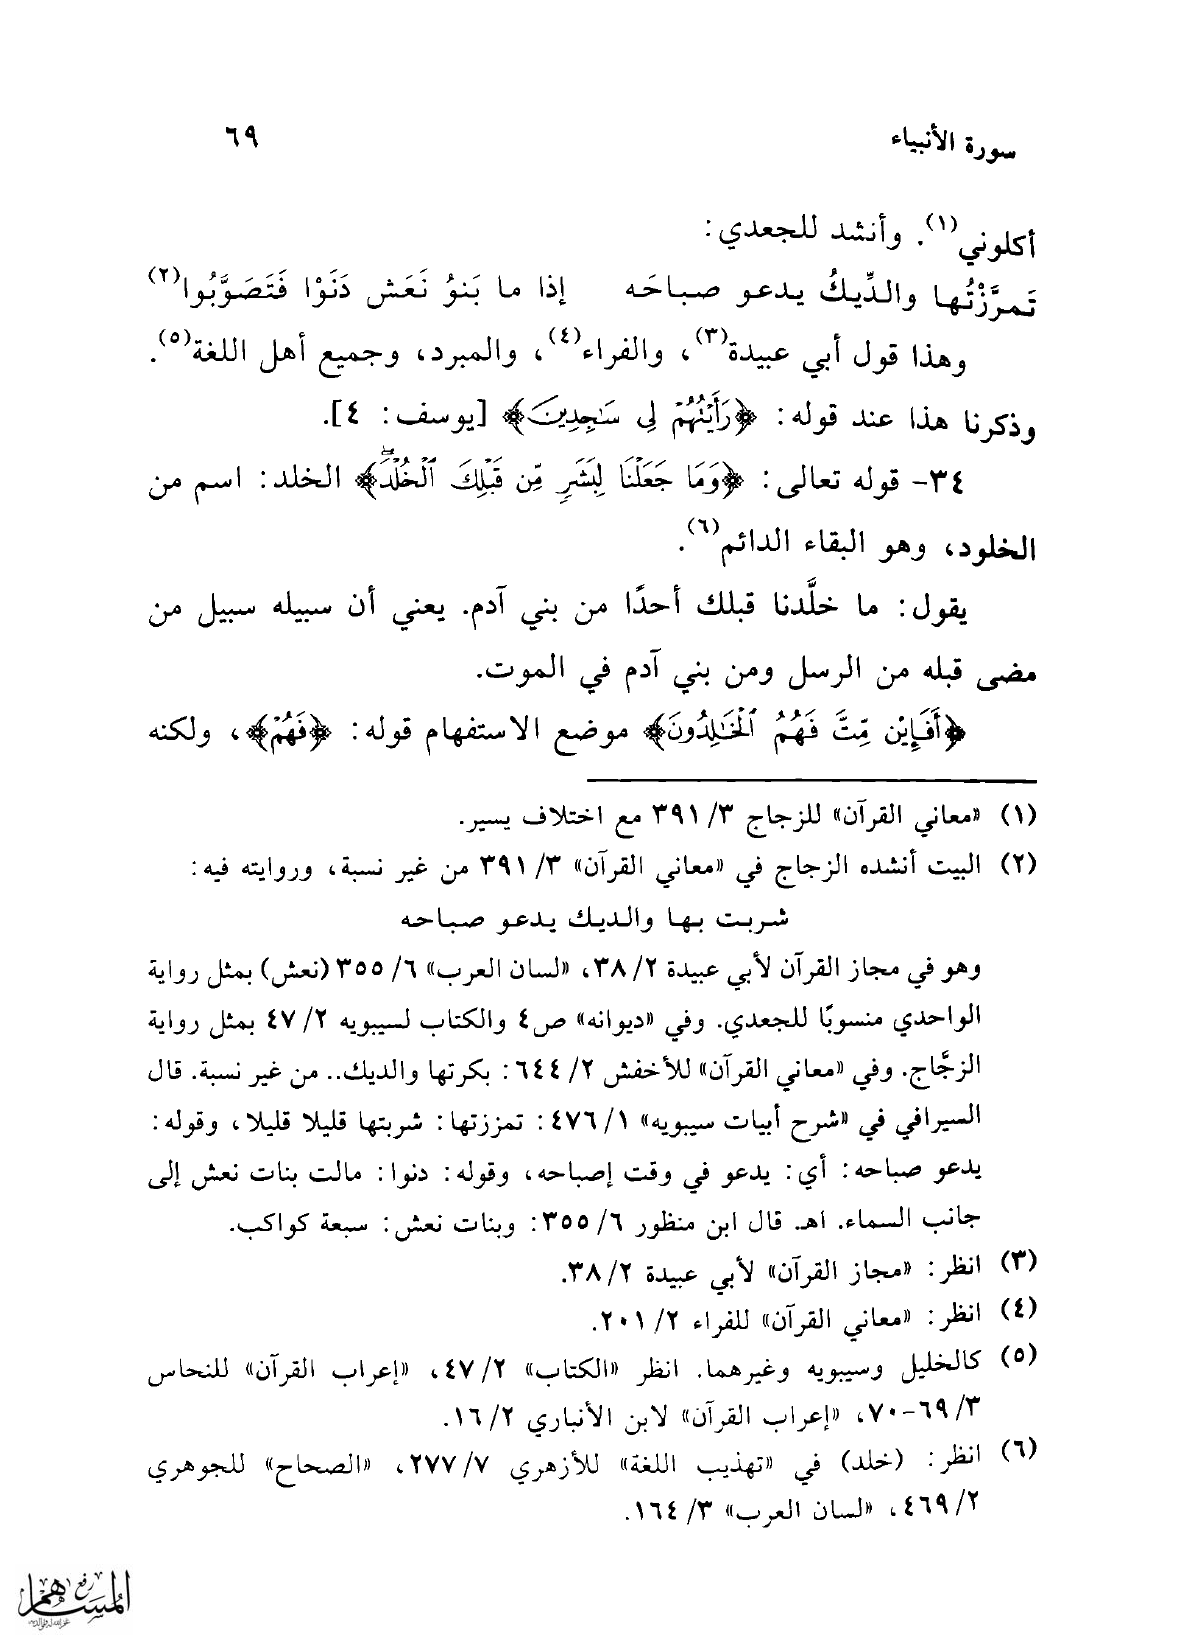 سورة الأنبياء ٦٩
أكلوني(١). وأنشد للجعدي:
تَمزَّزْتُها والدِّيكُ يدعو صباحَه إذا ما بَنوُ نَعَش دَنَوْا فَتَصَوَّبُوا(٢)
وهذا قول أبي عبيدة(٣)، والفراء(٤)، والمبرد، وجميع أهل اللغة(٥).
وذكرنا هذا عند قوله: ﴿رَأَيْتُهُمْ لِي سَاجِدِينَ﴾ [يوسف: ٤].
٣٤- قوله تعالى: ﴿وَمَا جَعَلْنَا لِبَشَرٍ مِّن قَبْلِكَ الْخُلْدَ﴾ الخلد: اسم من
الخلود، وهو البقاء الدائم(٦).
يقول: ما خلَّدنا قبلك أحدًا من بني آدم. يعني أن سبيله سبيل من
مضى قبله من الرسل ومن بني آدم في الموت.
﴿أَفَإِيْن مِّتَّ فَهُمُ الْخَالِدُونَ﴾ موضع الاستفهام قوله: ﴿فَهُمُ﴾، ولكنه
(١) «معاني القرآن» للزجاج ٣/ ٣٩١ مع اختلاف يسير.
(٢) البيت أنشده الزجاج في «معاني القرآن» ٣/ ٣٩١ من غير نسبة، وروايته فيه:
شربت بها والديك يدعو صباحه
وهو في مجاز القرآن لأبي عبيدة ٢/ ٣٨، «لسان العرب» ٦/ ٣٥٥ (نعش) بمثل رواية
الواحدي منسوبًا للجعدي. وفي «ديوانه» ص٤ والكتاب لسيبويه ٢/ ٤٧ بمثل رواية
الزجَّاج. وفي «معاني القرآن» للأخفش ٢/ ٦٤٤: بكرتها والديك.. من غير نسبة. قال
السيرافي في «شرح أبيات سيبويه» ١/ ٤٧٦: تمززتها: شربتها قليلا قليلا، وقوله:
يدعو صباحه: أي: يدعو في وقت إصباحه، وقوله: دنوا: مالت بنات نعش إلى
جانب السماء. اهـ. قال ابن منظور ٦/ ٣٥٥: وبنات نعش: سبعة كواكب.
(٣) انظر: «مجاز القرآن» لأبي عبيدة ٢/ ٣٨.
(٤) انظر: «معاني القرآن» للفراء ٢/ ٢٠١.
(٥) كالخليل وسيبويه وغيرهما. انظر «الكتاب» ٢/ ٤٧، «إعراب القرآن» للنحاس
٣/ ٦٩-٧٠، «إعراب القرآن» لابن الأنباري ٢/ ١٦.
(٦) انظر: (خلد) في «تهذيب اللغة» للأزهري ٧/ ٢٧٧، «الصحاح» للجوهري
٢/ ٤٦٩، «لسان العرب» ٣/ ١٦٤.
رفع
المساهم